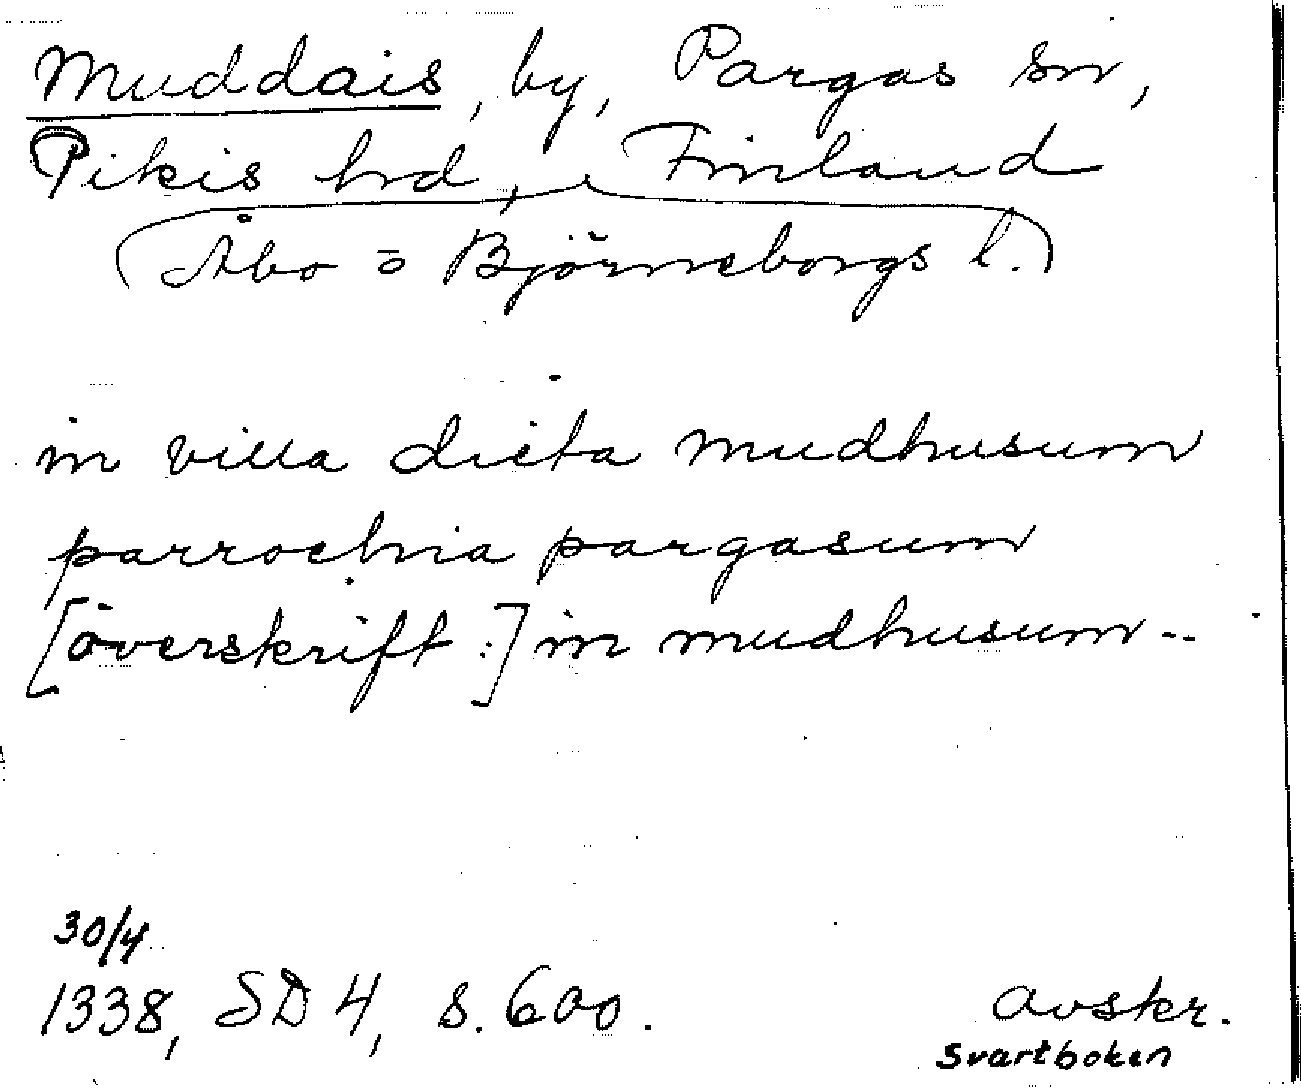 Muddais, by, Pargas sn,
Pikis hrd, Finland
(Åbo o Björneborgs l.)
in villa dicta mudhusum
parrochia pargasum
[överskrift:] in mudhusum--
30/4
1338, SD 4, s. 600.
Avskr.
Svartboken